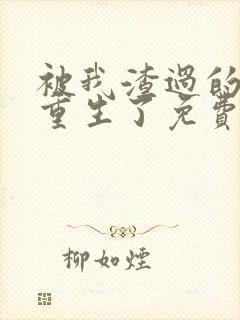 被我渣过的
重生了免费
柳如煙